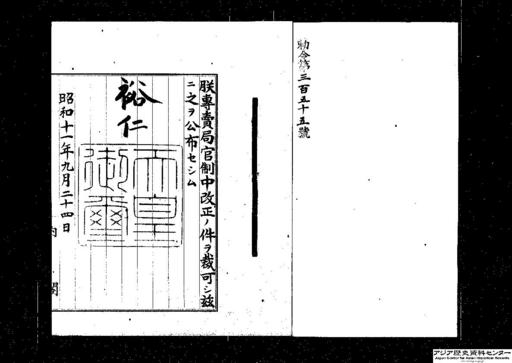 勅令第三百五十五號
朕專賣局官制中改正ノ件ヲ裁可シ茲
ニ之ヲ公布セシム
裕仁
天皇御璽
昭和十一年九月二十四日
内閣
アジア歴史資料センター
Japan Center for Asian Historical Records